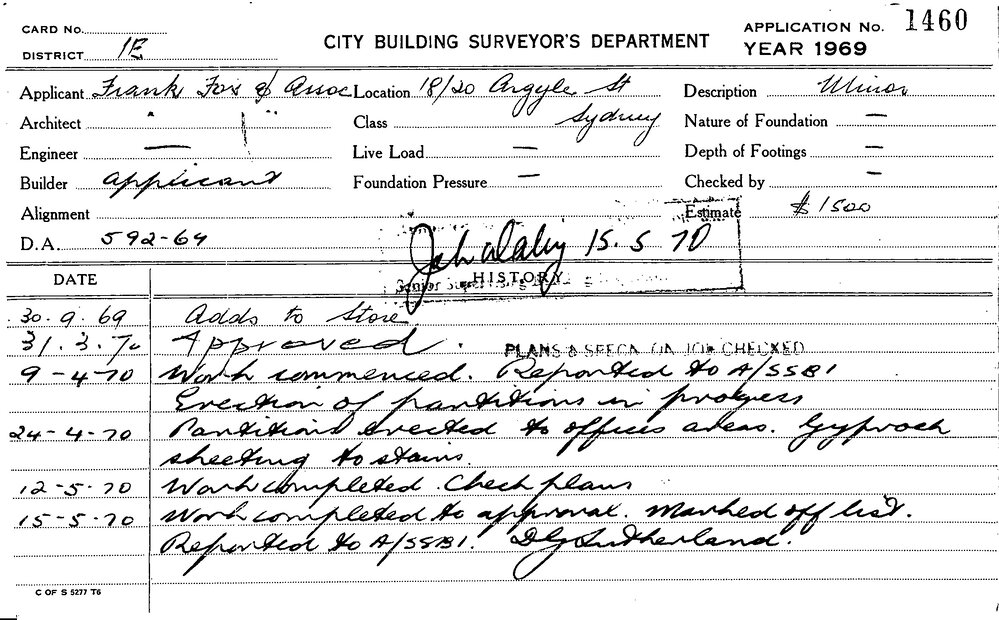 CARD No.
DISTRICT 1E
CITY BUILDING SURVEYOR'S DEPARTMENT
APPLICATION No. 1460
YEAR 1969
Applicant Frank Fox & Assoc Location 18/20 Argyle St Description Minor
Architect Class Sydney Nature of Foundation —
Engineer — Live Load — Depth of Footings —
Builder applicant Foundation Pressure — Checked by —
Alignment Estimate $1500
D.A. 592-69 15.5 70
DATE HISTORY
30.9.69 Adds to Store
31.3.70 Approved. PLANS & SPECN ON JOB CHECKED
9-4-70 Work commenced. Reported to A/SSB1
Erection of partitions in progess
24-4-70 Partitions erected to offices areas. Gyprock
sheeting to stairs.
12-5-70 Work completed. Check plans
15-5-70 Work completed to approval. Marked off list.
Reported to A/SSB1. DGSutherland.
C OF S 5277 T6